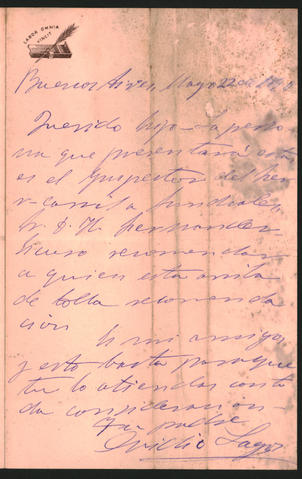 LABOR OMNIA
VINCIT
Buenos Aires, Mayo 22 de
Querido hijo - La perso
na que presentará esta
es el Inspector del ferr
-carril
Sr. D. H. Hernandez
recomendar
a quien esta
de toda recomenda
cion
Es mi amigo,
y esto basta para que
tu lo atiendas con to
da consideracion -
Tu padre
Ovidio Lagos